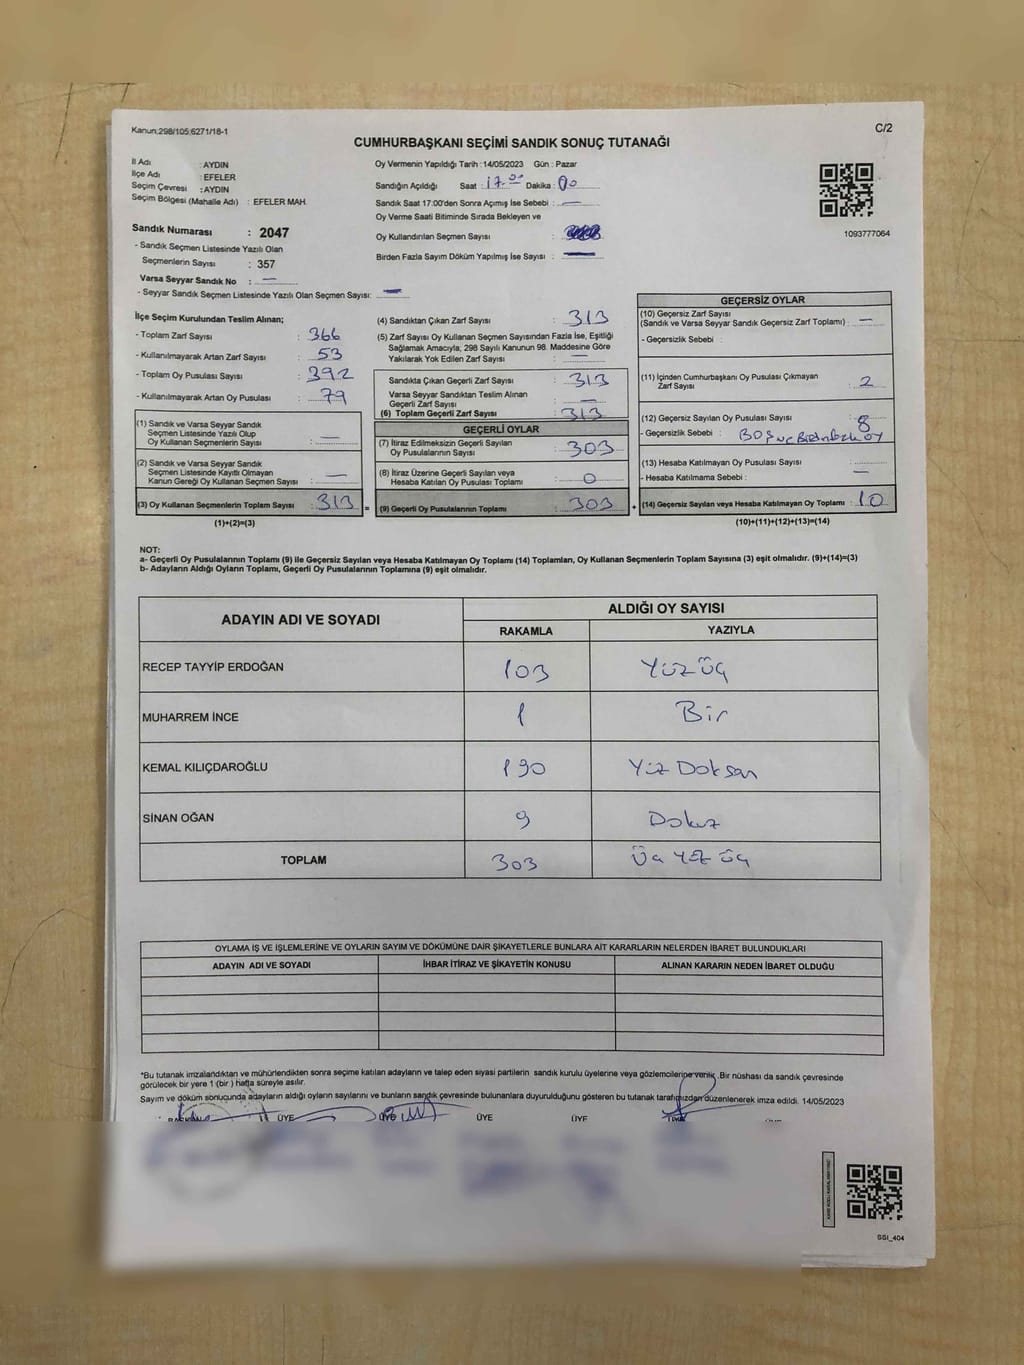 Kanun:298/105;6271/18-1
C/2
CUMHURBAŞKANI SEÇİMİ SANDIK SONUÇ TUTANAĞI
İl Adı : AYDIN
İlçe Adı : EFELER
Seçim Çevresi : AYDIN
Seçim Bölgesi (Mahalle Adı) : EFELER MAH.
Sandık Numarası : 2047
- Sandık Seçmen Listesinde Yazılı Olan
Seçmenlerin Sayısı : 357
Varsa Seyyar Sandık No : —
- Seyyar Sandık Seçmen Listesinde Yazılı Olan Seçmen Sayısı: —
Oy Vermenin Yapıldığı Tarih : 14/05/2023 Gün : Pazar
Sandığın Açıldığı Saat : 17.00 Dakika : 00
Sandık Saat 17:00'den Sonra Açımış İse Sebebi : —
Oy Verme Saati Bitiminde Sırada Bekleyen ve
Oy Kullandırılan Seçmen Sayısı :
Birden Fazla Sayım Döküm Yapılmış İse Sayısı : —
1093777064
İlçe Seçim Kurulundan Teslim Alınan;
- Toplam Zarf Sayısı : 366
- Kullanılmayarak Artan Zarf Sayısı : 53
- Toplam Oy Pusulası Sayısı : 392
- Kullanılmayarak Artan Oy Pusulası : 79
(1) Sandık ve Varsa Seyyar Sandık
Seçmen Listesinde Yazılı Olup
Oy Kullanan Seçmenlerin Sayısı : —
(2) Sandık ve Varsa Seyyar Sandık
Seçmen Listesinde Kayıtlı Olmayan
Kanun Gereği Oy Kullanan Seçmen Sayısı : —
(3) Oy Kullanan Seçmenlerin Toplam Sayısı : 313 =
(1)+(2)=(3)
(4) Sandıktan Çıkan Zarf Sayısı : 313
(5) Zarf Sayısı Oy Kullanan Seçmen Sayısından Fazla İse, Eşitliği
Sağlamak Amacıyla, 298 Sayılı Kanunun 98. Maddesine Göre
Yakılarak Yok Edilen Zarf Sayısı : —
Sandıkta Çıkan Geçerli Zarf Sayısı : 313
Varsa Seyyar Sandıktan Teslim Alınan
Geçerli Zarf Sayısı : —
(6) Toplam Geçerli Zarf Sayısı : 313
GEÇERLİ OYLAR
(7) İtiraz Edilmeksizin Geçerli Sayılan
Oy Pusulalarının Sayısı : 303
(8) İtiraz Üzerine Geçerli Sayılan veya
Hesaba Katılan Oy Pusulası Toplamı : 0
(9) Geçerli Oy Pusulalarının Toplamı : 303 +
GEÇERSİZ OYLAR
(10) Geçersiz Zarf Sayısı
(Sandık ve Varsa Seyyar Sandık Geçersiz Zarf Toplamı) : —
- Geçersizlik Sebebi :
(11) İçinden Cumhurbaşkanı Oy Pusulası Çıkmayan
Zarf Sayısı : 2
(12) Geçersiz Sayılan Oy Pusulası Sayısı : 8
- Geçersizlik Sebebi : BOŞ ve OY
(13) Hesaba Katılmayan Oy Pusulası Sayısı :
- Hesaba Katılmama Sebebi : —
(14) Geçersiz Sayılan veya Hesaba Katılmayan Oy Toplamı : 10
(10)+(11)+(12)+(13)=(14)
NOT:
a- Geçerli Oy Pusulalarının Toplamı (9) ile Geçersiz Sayılan veya Hesaba Katılmayan Oy Toplamı (14) Toplamları, Oy Kullanan Seçmenlerin Toplam Sayısına (3) eşit olmalıdır. (9)+(14)=(3)
b- Adayların Aldığı Oyların Toplamı, Geçerli Oy Pusulalarının Toplamına (9) eşit olmalıdır.
ADAYIN ADI VE SOYADI
ALDIĞI OY SAYISI
RAKAMLA YAZIYLA
RECEP TAYYİP ERDOĞAN 103 Yüz üç
MUHARREM İNCE 1 Bir
KEMAL KILIÇDAROĞLU 190 Yüz Doksan
SİNAN OĞAN 9 Dokuz
TOPLAM 303 Üç Yüz üç
OYLAMA İŞ VE İŞLEMLERİNE VE OYLARIN SAYIM VE DÖKÜMÜNE DAİR ŞİKAYETLERLE BUNLARA AİT KARARLARIN NELERDEN İBARET BULUNDUKLARI
ADAYIN ADI VE SOYADI İHBAR İTİRAZ VE ŞİKAYETİN KONUSU ALINAN KARARIN NEDEN İBARET OLDUĞU
*Bu tutanak imzalandıktan ve mühürlendikten sonra seçime katılan adayların ve talep eden siyasi partilerin sandık kurulu üyelerine veya gözlemcilerine verilir. Bir nüshası da sandık çevresinde
görülecek bir yere 1 (bir ) hafta süreyle asılır.
Sayım ve döküm sonucunda adayların aldığı oyların sayılarını ve bunların sandık çevresinde bulunanlara duyurulduğunu gösteren bu tutanak tarafımızdan düzenlenerek imza edildi. 14/05/2023
BAŞKAN ÜYE ÜYE ÜYE ÜYE ÜYE
SSI_404